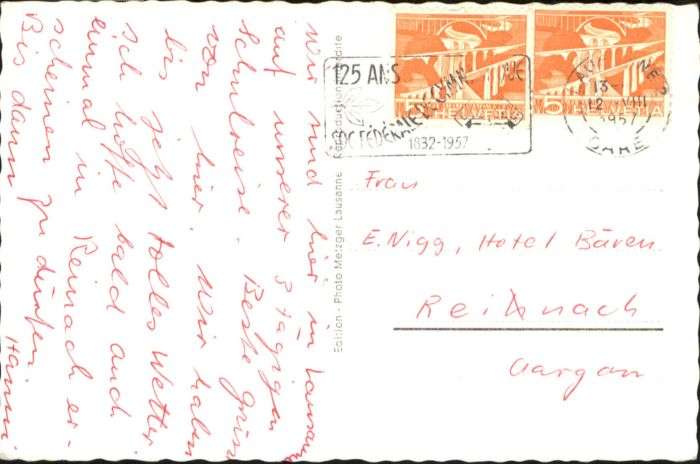 Wir sind hier in Lausanne
auf unserer 3 tägigen
Schulreise. Beste Grüsse
von hier. Wir haben
bis jetzt tolles Wetter
ich hoffe bald auch
einmal in Reinach er-
scheinen zu dürfen
Bis dann
Edition - Photo Metzger Lausanne
125 ANS
SOC. FÉDÉRALE DE GYMN
1832-1957
13
12 VIII
1957
GARE
HELVETIA
Frau
E. Nigg, Hotel Bären.
Reihnach
Aargau